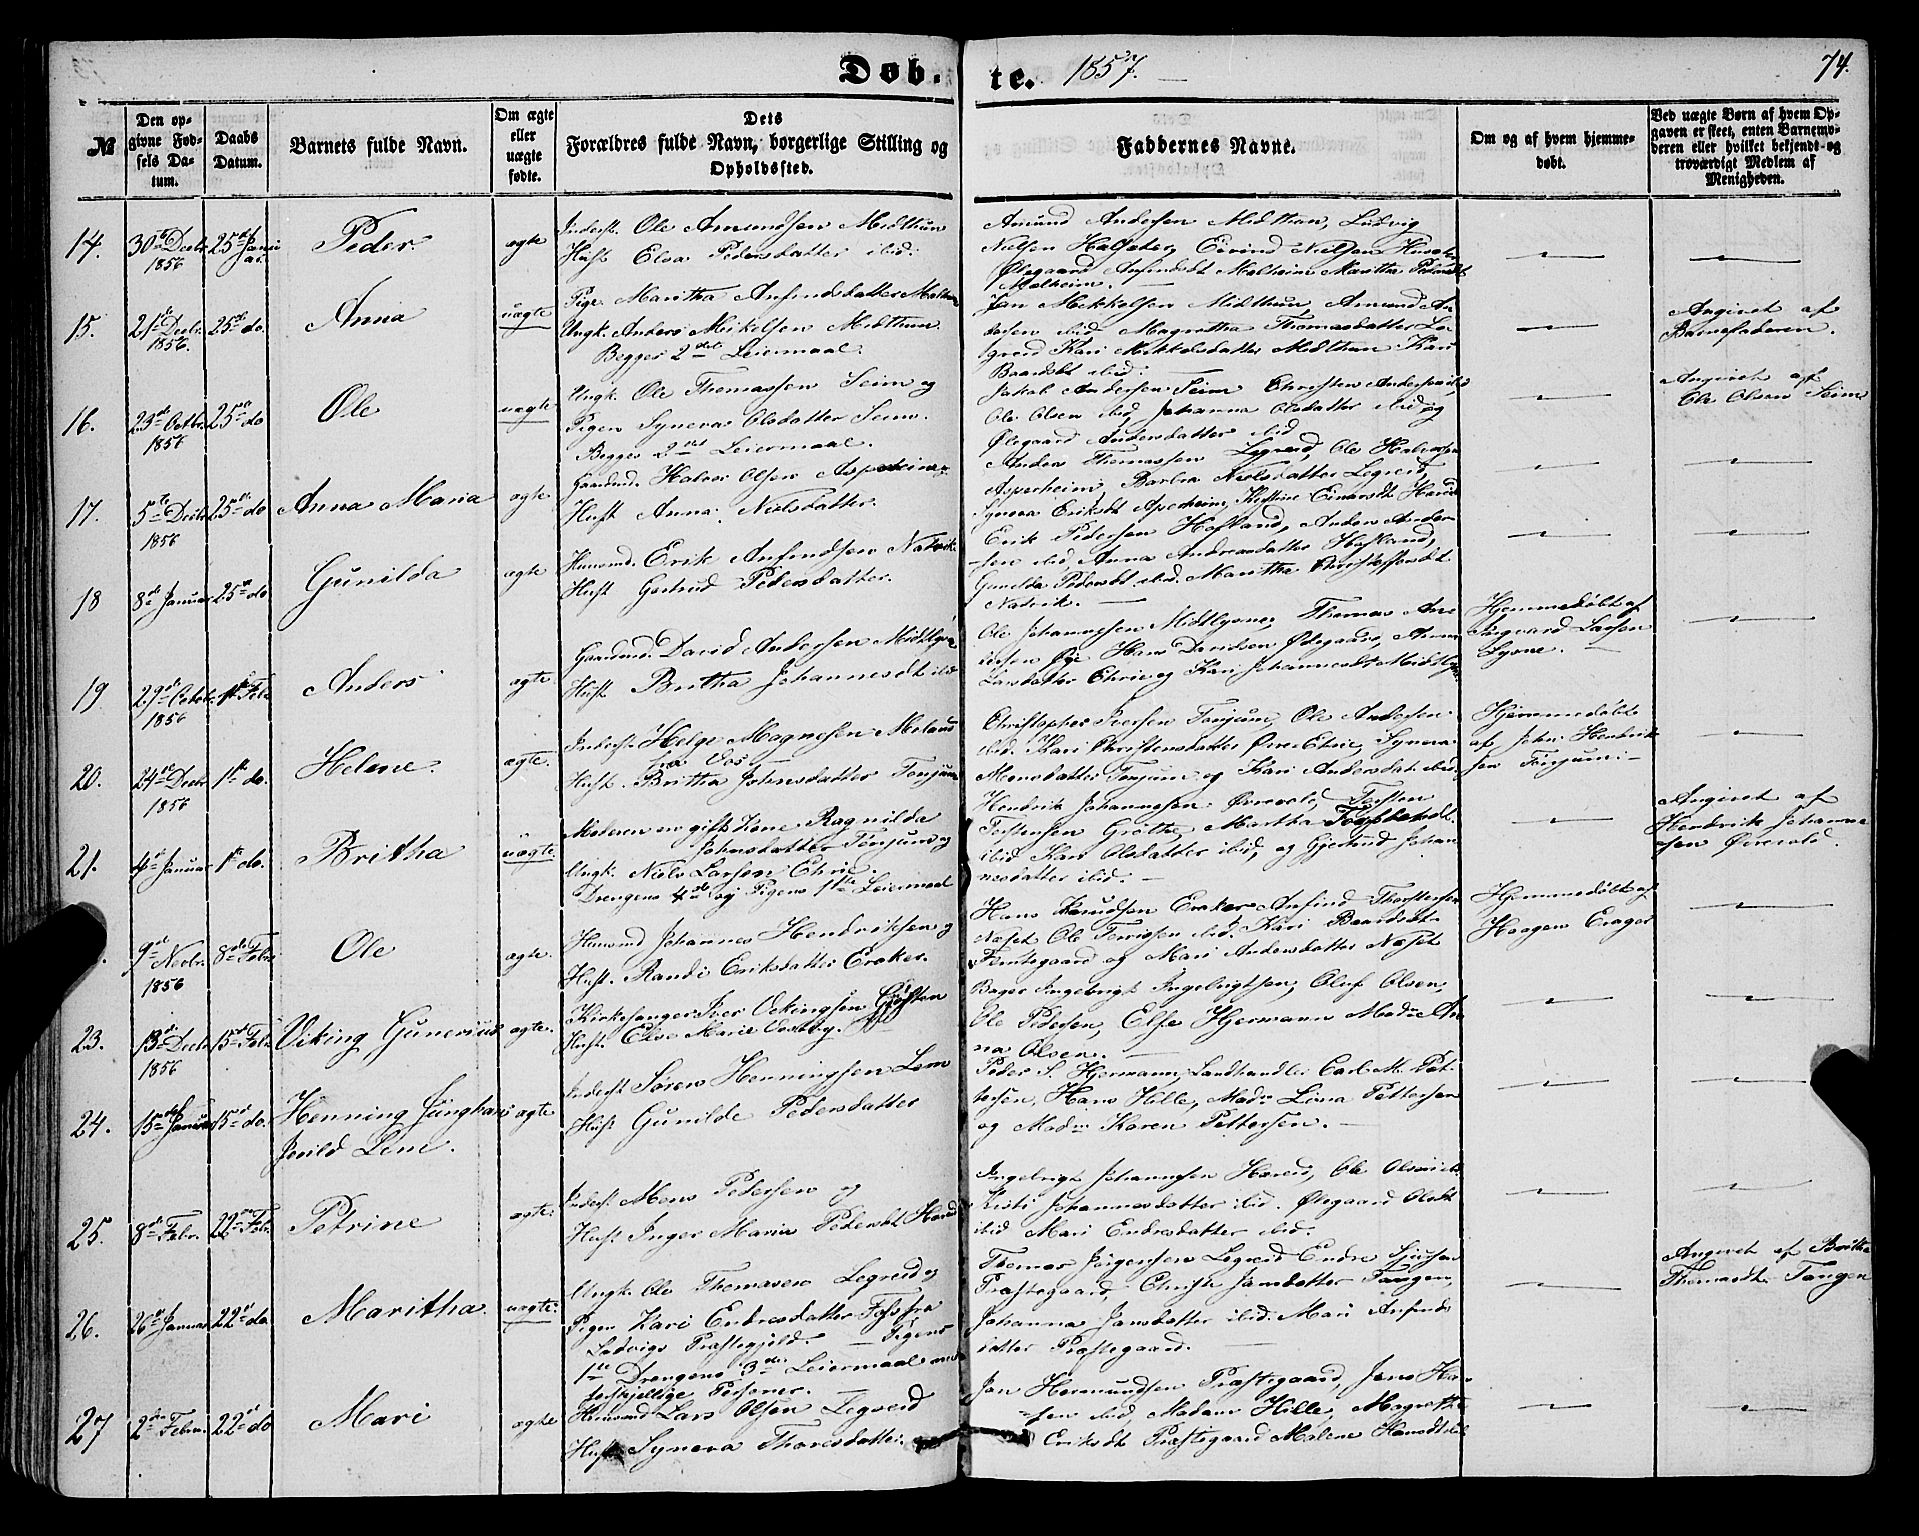 Døb-te. 1857. 74.
№
Den opgivne Fødsels Datum.
Daabs Datum.
Barnets fulde Navn.
Om ægte eller uægte fødte.
Dets Forældres fulde Navn, borgerlige Stilling og Opholdssted.
Faddernes Navne.
Om og af hvem hjemmedøbt.
Ved uægte Børn af hvem Opgaven er skeet, enten Barnemoderen eller hvilket bekjendt og troværdigt Medlem af Menigheden.
14. 30te Decbr 1856 25de Januar Peder. ægte
Inderst. Ole Amundsen Midthun
Hust. Elsa Pedersdatter ibid:
Amund Andersen Midthun, Ludvig
Nielsen Eivind Nielsen
Ølegaard Anfindsdt Molheim Maritha Pedersdt
Molheim. —
15. 21de Decbr. 1856. 25de do. Anna uægte
Pige Maritha Anfindsdatter
Ungk. Anders Mikelsen Midthun
Begges 2det Leiermaal.
Jon Mikkelsen Midthun, Amund An-
dersen ibid Magretha Thomasdatter Le-
greid Kari Mikkelsdatter Midthun Kari
Baardsdt ibid:
Angivet af
Barnefaderen.
16. 23de Octbr. 1856 25de do Ole uægte
Ungk. Ole Thomassen Seim og
Pigen Syneva Olsdatter Seim.
Begges 2det Leiermaal.
Jakob Andersen Seim Christen Andersen ibid
Ole Olsen ibid, Johanna Olsdatter ibid og
Ølegaard Andersdatter ibid
Angivet af
Ole Olsen Seim
17. 5te Decbr 1856 25de do Anna Maria ægte
Gaardmd. Halvor Olsen Asperheim
Hust Anna Nielsdatter.
Anders Thomassen Legreid, Ole Halvorsen
Asperheim Barbra Nielsdatter Legreid,
Syneva Eriksdt Asperheim, Kjstine Einarsdt
18 8de Januar 25de do. Gunilda ægte
Huusmd. Erik Anfindsen Natvik
Hust Gertrud Pedersdatter.
Erik Pedersen Hofland, Anders Ander-
sen ibid, Anna Andreasdatter Hofland,
Gunilda Pedersdt ibid. Maritha Christoffersdt
Natvik. —
19 29de Octobr. 1856 1ste Febr Anders ægte
Gaardmd. David Andersen Midtlysne
Hust Britha Johannesdt ibid
Ole Johannesen Midtlysne, Thomas An-
dersen Øje Hans Davidsen Ødegaard, Anna
Larsdatter Ehrie og Kari Johannesdt Midtlysne
Hjemmedøbt af
Ingvard Larsen
Lysne. —
20. 24de Decbr 1856 1ste do. Helene. ægte.
Inderst. Helge Magnesen Meland
fra Vos
Hust. Britha Johnsdatter Tønjum
Christopher Iversen Tønjum, Ole Andersen
ibid. Kari Christensdatter Øvre Ehrie, Syneva
Monsdatter Tønjum og Kari Andersdat. ibid,
Hjemmedøbt
af John Hendrik-
sen Tønjum. —
21. 4de Januar 1ste do. Britha uægte.
Moderen er gift Kone Ragnilda
Johnsdatter Tønjum og
Ungk. Niels Larsen Ehrie.
Drengens 4de og Pigens 1ste Leiermaal
Hendrik Johannesen Øvrevold, Torsten
Torstensen Grøthe, Martha
ibid Kari Olsdatter ibid, og Gjertrud Johan-
nesdatter ibid. —
Angivet af
Hendrik Johanne-
sen Øvrevold.
9de Novbr. 1856 8de Febr. Ole ægte.
Huusmd Johannes Hendriksen og
Hust. Randi Eriksdatter Eraker.
Hans Knudsen Eraker Anfind Thorstensen
Næset Ole Terjesen ibid. Kari Baardsdat.
Tentegaard og Mari Andersdatter Næset
Hjemmedøbt af
Haagen Erager
23. 13de Decbr 1856 15de Febr. Viking Gunerius ægte.
Kirkesanger Iver Vekingsen Gjesten
Hust. Else Marie
Bager Ingebrigt Ingebrigtsen, Oluf Olsen,
Ole Pedersen, Else Hjermann Madm An-
na Olsen. —
24. 15de Januar 15de do. Henning Junghans
Jovild Lene. ægte
Inderst Søren Henningsen Lem
Hust Gunilde Pedersdatter
Peder S. Hjermann, Landhandler Carl M. Pet-
tersen, Hans Hille, Madm Lina Pettersen
og Madm Karen Pettersen. —
25. 8de Febr. 22de Febr. Petrine ægte.
Inderst Mons Pedersen og
Hust Inger Maria Pedersdt
Ingebrigt Johannesen Hæreid, Ole Olsen ibid.
Kristi Johannesdatter ibid. Ølegaard Olsdt
ibid Mari Endresdatter ibid.
26. 26de Januar 22de do. Maritha. uægte.
Ungk. Ole Thomasen Legreid og
Pigen Kari Endresdatter Foss fra
Ladvigs Præstegjeld. — Pigens
1ste Drengens 3de Leiermaal med
forskjellige Personer. —
Thomas Jørgensen Legreid Endre Sjursen
Præstegaard, Christi Jansdatter Tangen,
Johanna Jansdatter ibid. Mari Anfinds-
datter Præstegaard.
Angivet af Britha
Thomasdt Tangen
27 2den Febru. 22de do Mari ægte
Huusmd Lars Olsen Legreid
Hust Syneva Thoresdatter.
Jan Hermundsen Præstegaard, Jens Han-
sen ibid, Madam Hille, Magretha
Eriksdt Præstegaard Malene Hansdt ibid